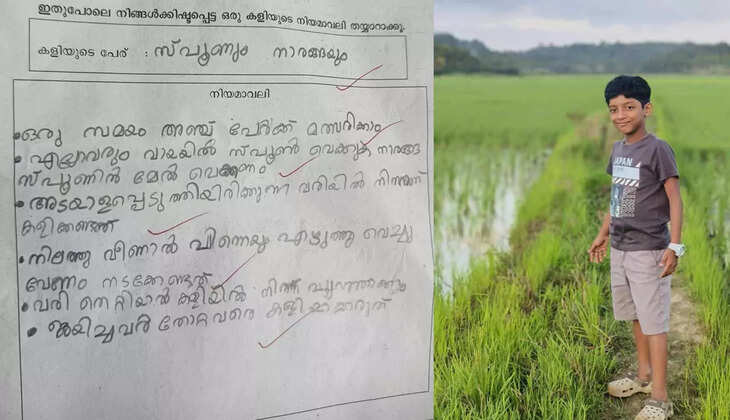 ഇതുപോലെ നിങ്ങൾക്കിഷ്ടപ്പെട്ട ഒരു കളിയുടെ നിയമാവലി തയ്യാറാക്കൂ.
കളിയുടെ പേര് : സ്പൂണും നാരങ്ങയും
നിയമാവലി
•ഒരു സമയം അഞ്ച് പേർക്ക് മത്സരിക്കാം
• എല്ലാവരും വായയിൽ സ്പൂൺ വെക്കുക നാരങ്ങ
സ്പൂണിൻ മേൽ വെക്കണം
• അടയാളപ്പെടുത്തിയിരിക്കുന്ന വരിയിൽ നിന്നാണ്
കളിക്കേണ്ടത്
• നിലത്തു വീണാൽ പിന്നെയും എടുത്തു വെച്ചു
വേണം നടക്കേണ്ടത്
• വരി തെറ്റിയാൽ കളിയിൽ നിന്ന് പുറത്താകും
• ജയിച്ചവർ തോറ്റവരെ കളിയാക്കരുത്
JAPAN